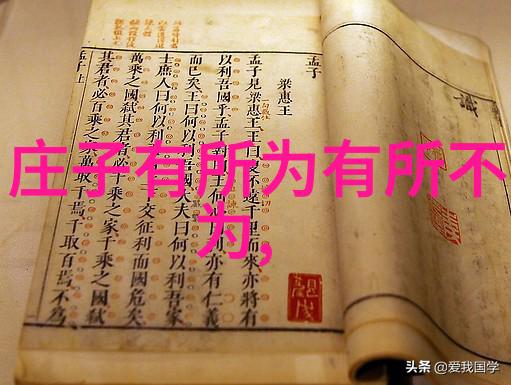 庄子有所为有所不
为,
孟子
梁惠王
孟子見梁惠王王曰叟不遠千里而來亦將有
以利吾國乎孟子對王何利亦有仁義
而已矣王曰何以利吾國大夫曰何以利吾家
士庶人曰何以利交征利而國危矣
萬乘之國弒其君者必千乘之家千乘之國弒
其君者必百乘之家萬取千焉千取百焉不為
孟子上
識
头条 @爱我国学